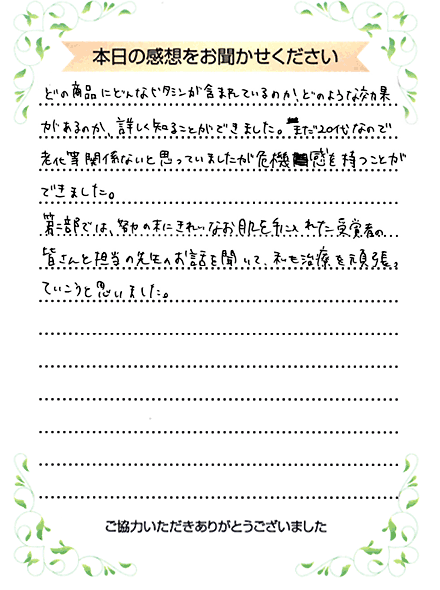 本日の感想をお聞かせください
どの商品にどんなビタミンが含まれているのか、どのような効果
があるのか、詳しく知ることができました。まだ20代なので
老化等関係ないと思っていましたが危機感を持つことが
できました。
第二部では、努力の末にきれいなお肌を手に入れた受賞者の
皆さんと担当の先生のお話を聞いて、私も治療を頑張っ
ていこうと思いました。
ご協力いただきありがとうございました